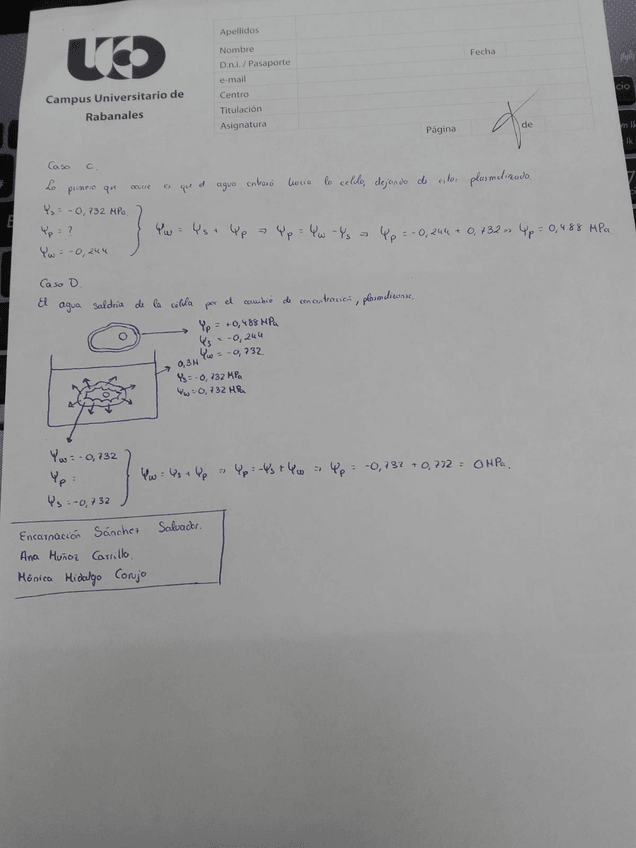 UCO
Campus Universitario de
Rabanales
Apellidos
Nombre
Fecha
D.n.i. / Pasaporte
e-mail
Centro
Titulación
Asignatura
Página
de
Caso C.
Lo primero que ocurre es que el agua entrará hacia la célula, dejando de estar plasmolizada.
Ψs = -0,732 MPa
Ψp = ?
Ψw = -0,244
Ψw = Ψs + Ψp ⇒ Ψp = Ψw - Ψs ⇒ Ψp = -0,244 + 0,732 ⇒ Ψp = 0,488 MPa
Caso D.
El agua saldría de la célula por el cambio de concentración,
Ψp = +0,488 MPa
Ψs = -0,244
Ψw = -0,732
0,3M
Ψs = -0,732 MPa
Ψw = 0,732 MPa
Ψw = -0,732
Ψp =
Ψs = -0,732
Ψw = Ψs + Ψp ⇒ Ψp = -Ψs + Ψw ⇒ Ψp = -0,732 + 0,732 = 0 MPa.
Encarnación Sánchez Salvador.
Ana Muñoz Carrillo.
Mónica Hidalgo Corujo